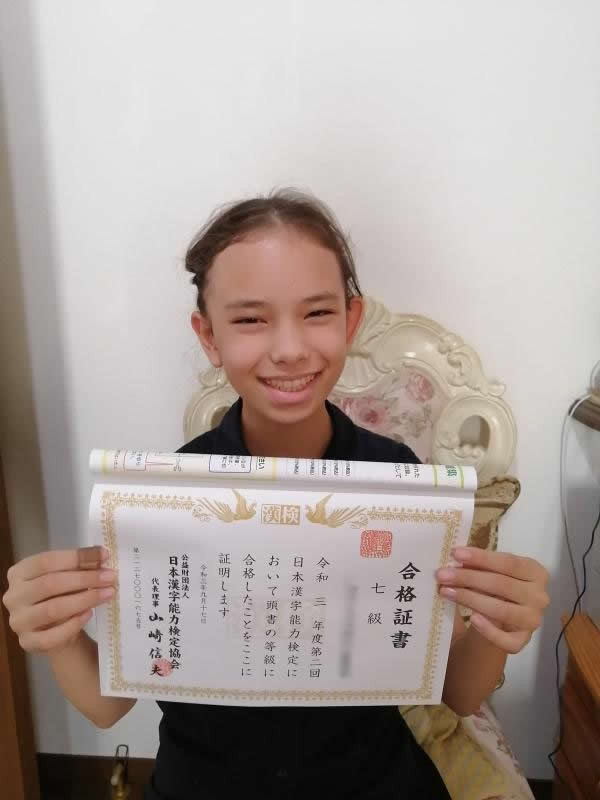 漢検
合格証書
七級
令和三年度第二回
日本漢字能力検定に
おいて頭書の等級に
合格したことをここに
証明します
令和三年九月十七日
公益財団法人
日本漢字能力検定協会
代表理事 山崎信夫